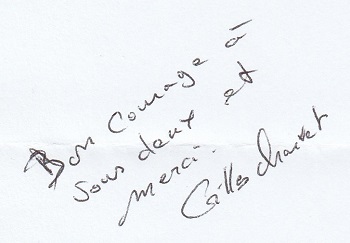 Bon Courage à
sous deux et
merci.
Gilles Chaillet